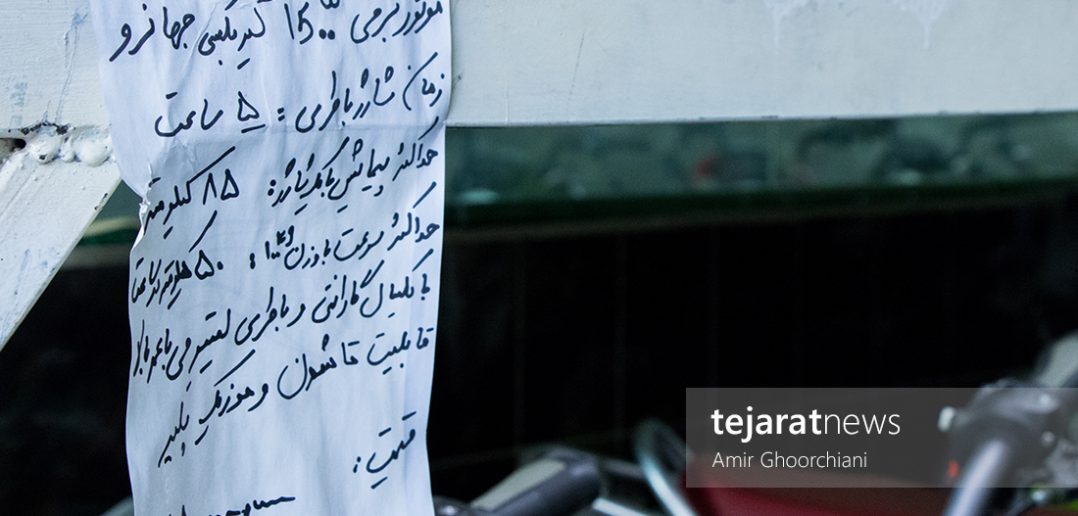 موتور برقی ۱۵۰۰ گیربکسی جهانرو
زمان شارژ باطری : ۵ ساعت
حداکثر پیمایش با یکبار شارژ: ۸۵ کیلومتر
حداکثر سرعت با وزن : ۵۰ کیلومتر در ساعت
با یکسال گارانتی و باطری لیتیومی با عمر بالا
قابلیت تا شدن و موزیک پلیر
قیمت :
tejaratnews
Amir Ghoorchiani